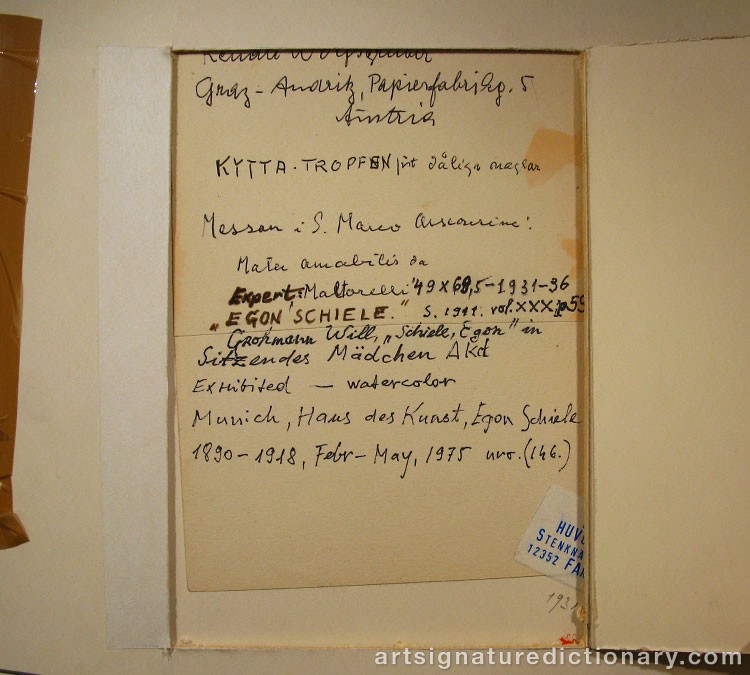 Graz - Andritz, Papierfabrikg. 5
Austria
KYTTA-TROPFEN för dåliga
Messan i S. Marco
Mater amabilis da
Expert: 49 x 68,5 - 1931-36
„EGON SCHIELE." S. 1911. vol. XXX p 59
Grohmann Will, „Schiele, Egon" in
Sitzendes Mädchen Akt
Exhibited — watercolor
Munich, Haus des Kunst, Egon Schiele
1890-1918, Febr - May, 1975 nro. (146.)
HUV
STENKN
12352 FA
1931
artsignaturedictionary.com